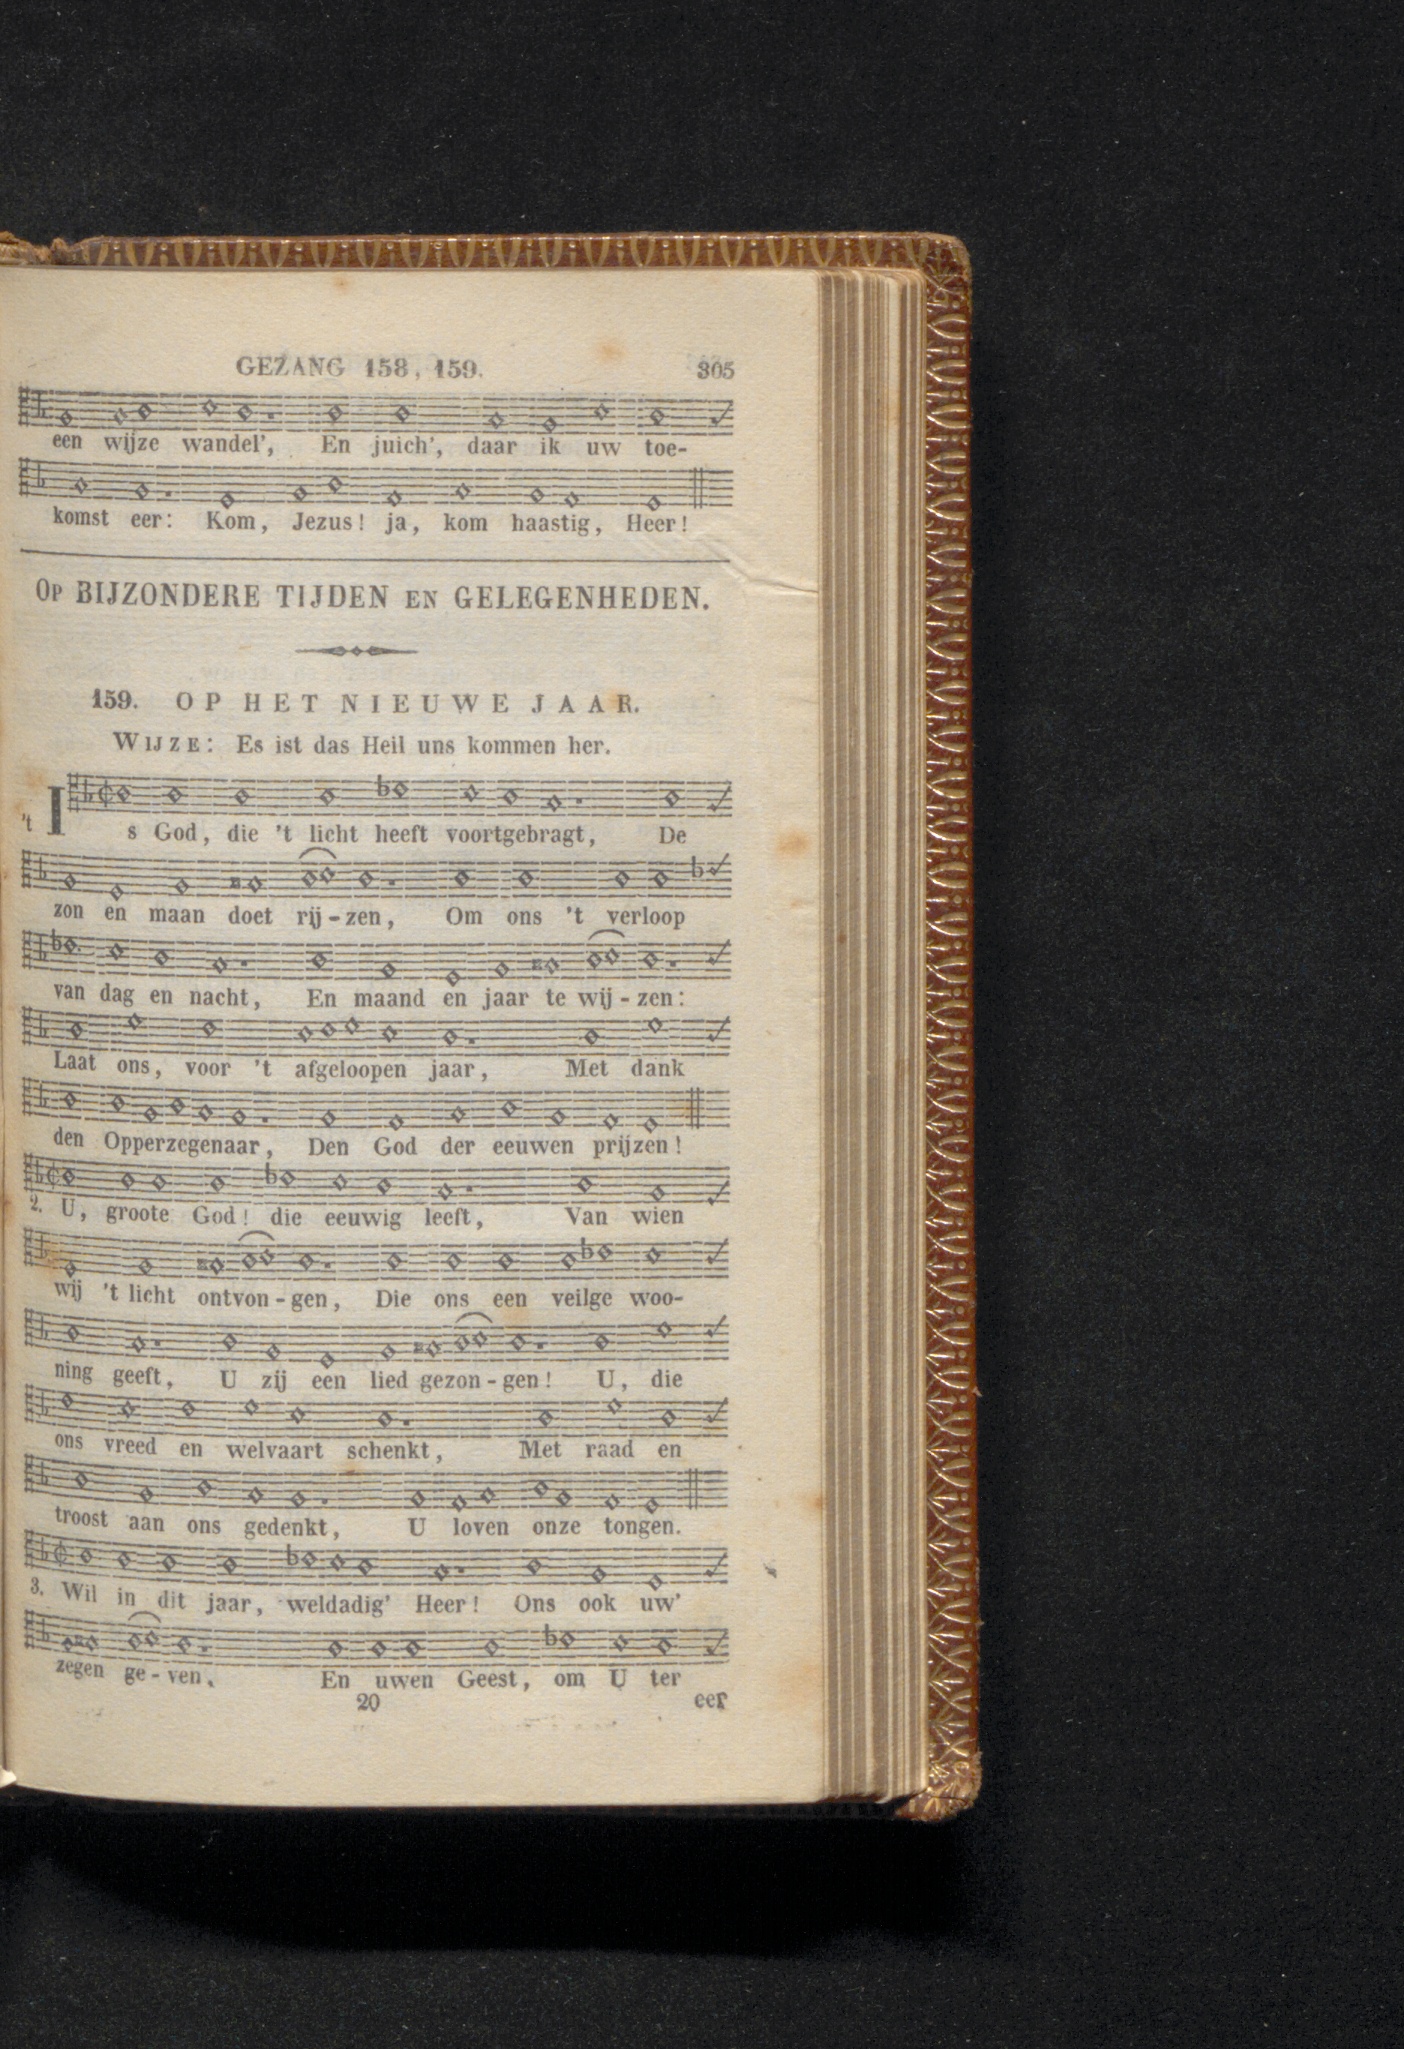 GEZANG 158, 159. 305
een wijze wandel', En juich', daar ik uw toe-
komst eer: Kom, Jezus! ja, kom haastig, Heer!
OP BIJZONDERE TIJDEN EN GELEGENHEDEN.
159. OP HET NIEUWE JAAR.
WIJZE: Es ist das Heil uns kommen her.
't Is God, die 't licht heeft voortgebragt, De
zon en maan doet rij-zen, Om ons 't verloop
van dag en nacht, En maand en jaar te wij-zen:
Laat ons, voor 't afgeloopen jaar, Met dank
den Opperzegenaar, Den God der eeuwen prijzen!
2. U, groote God! die eeuwig leeft, Van wien
wij 't licht ontvon-gen, Die ons een veilge woo-
ning geeft, U zij een lied gezon-gen! U, die
ons vreed en welvaart schenkt, Met raad en
troost aan ons gedenkt, U loven onze tongen.
3. Wil in dit jaar, weldadig' Heer! Ons ook uw'
zegen ge-ven, En uwen Geest, om U ter
20 eer